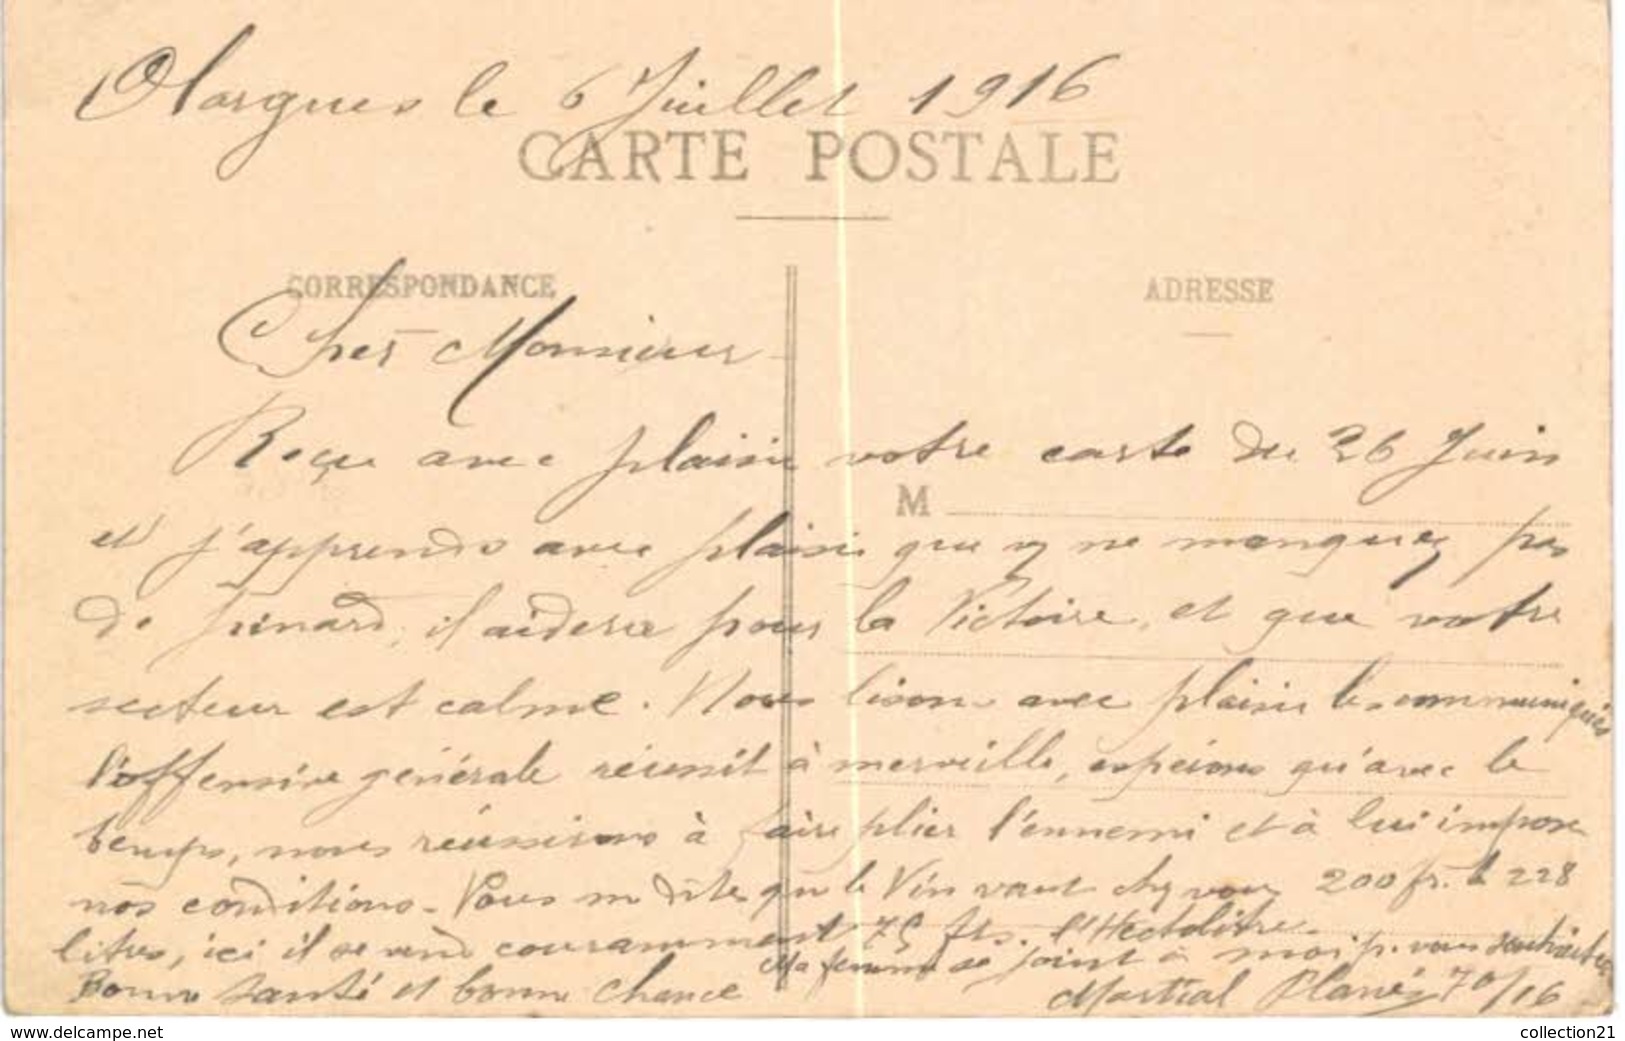 Olargues le 6 Juillet 1916
CARTE POSTALE
CORRESPONDANCE
ADRESSE
Cher Monsieur
Reçu avec plaisir votre carte du 26 Juin
M
et j'apprends avec plaisir que ne manquez pas
de pinard, il aidera pour la Victoire, et que votre
secteur est calme. Nous lisons avec plaisir les communiqués
l'offensive générale réussit à merveille, espérons qu'avec le
temps, nous réussirons à faire plier l'ennemi et à lui imposer
nos conditions. Vous m dites que le Vin vaut chez vous 200 fr. le 228
litres, ici il se vend couramment 75 frs. l'Hectolitre.
Ma femme se joint à moi p. vous souhaiter
Bonne santé et bonne chance
Martial Planès 70/16
www.delcampe.net
collection21